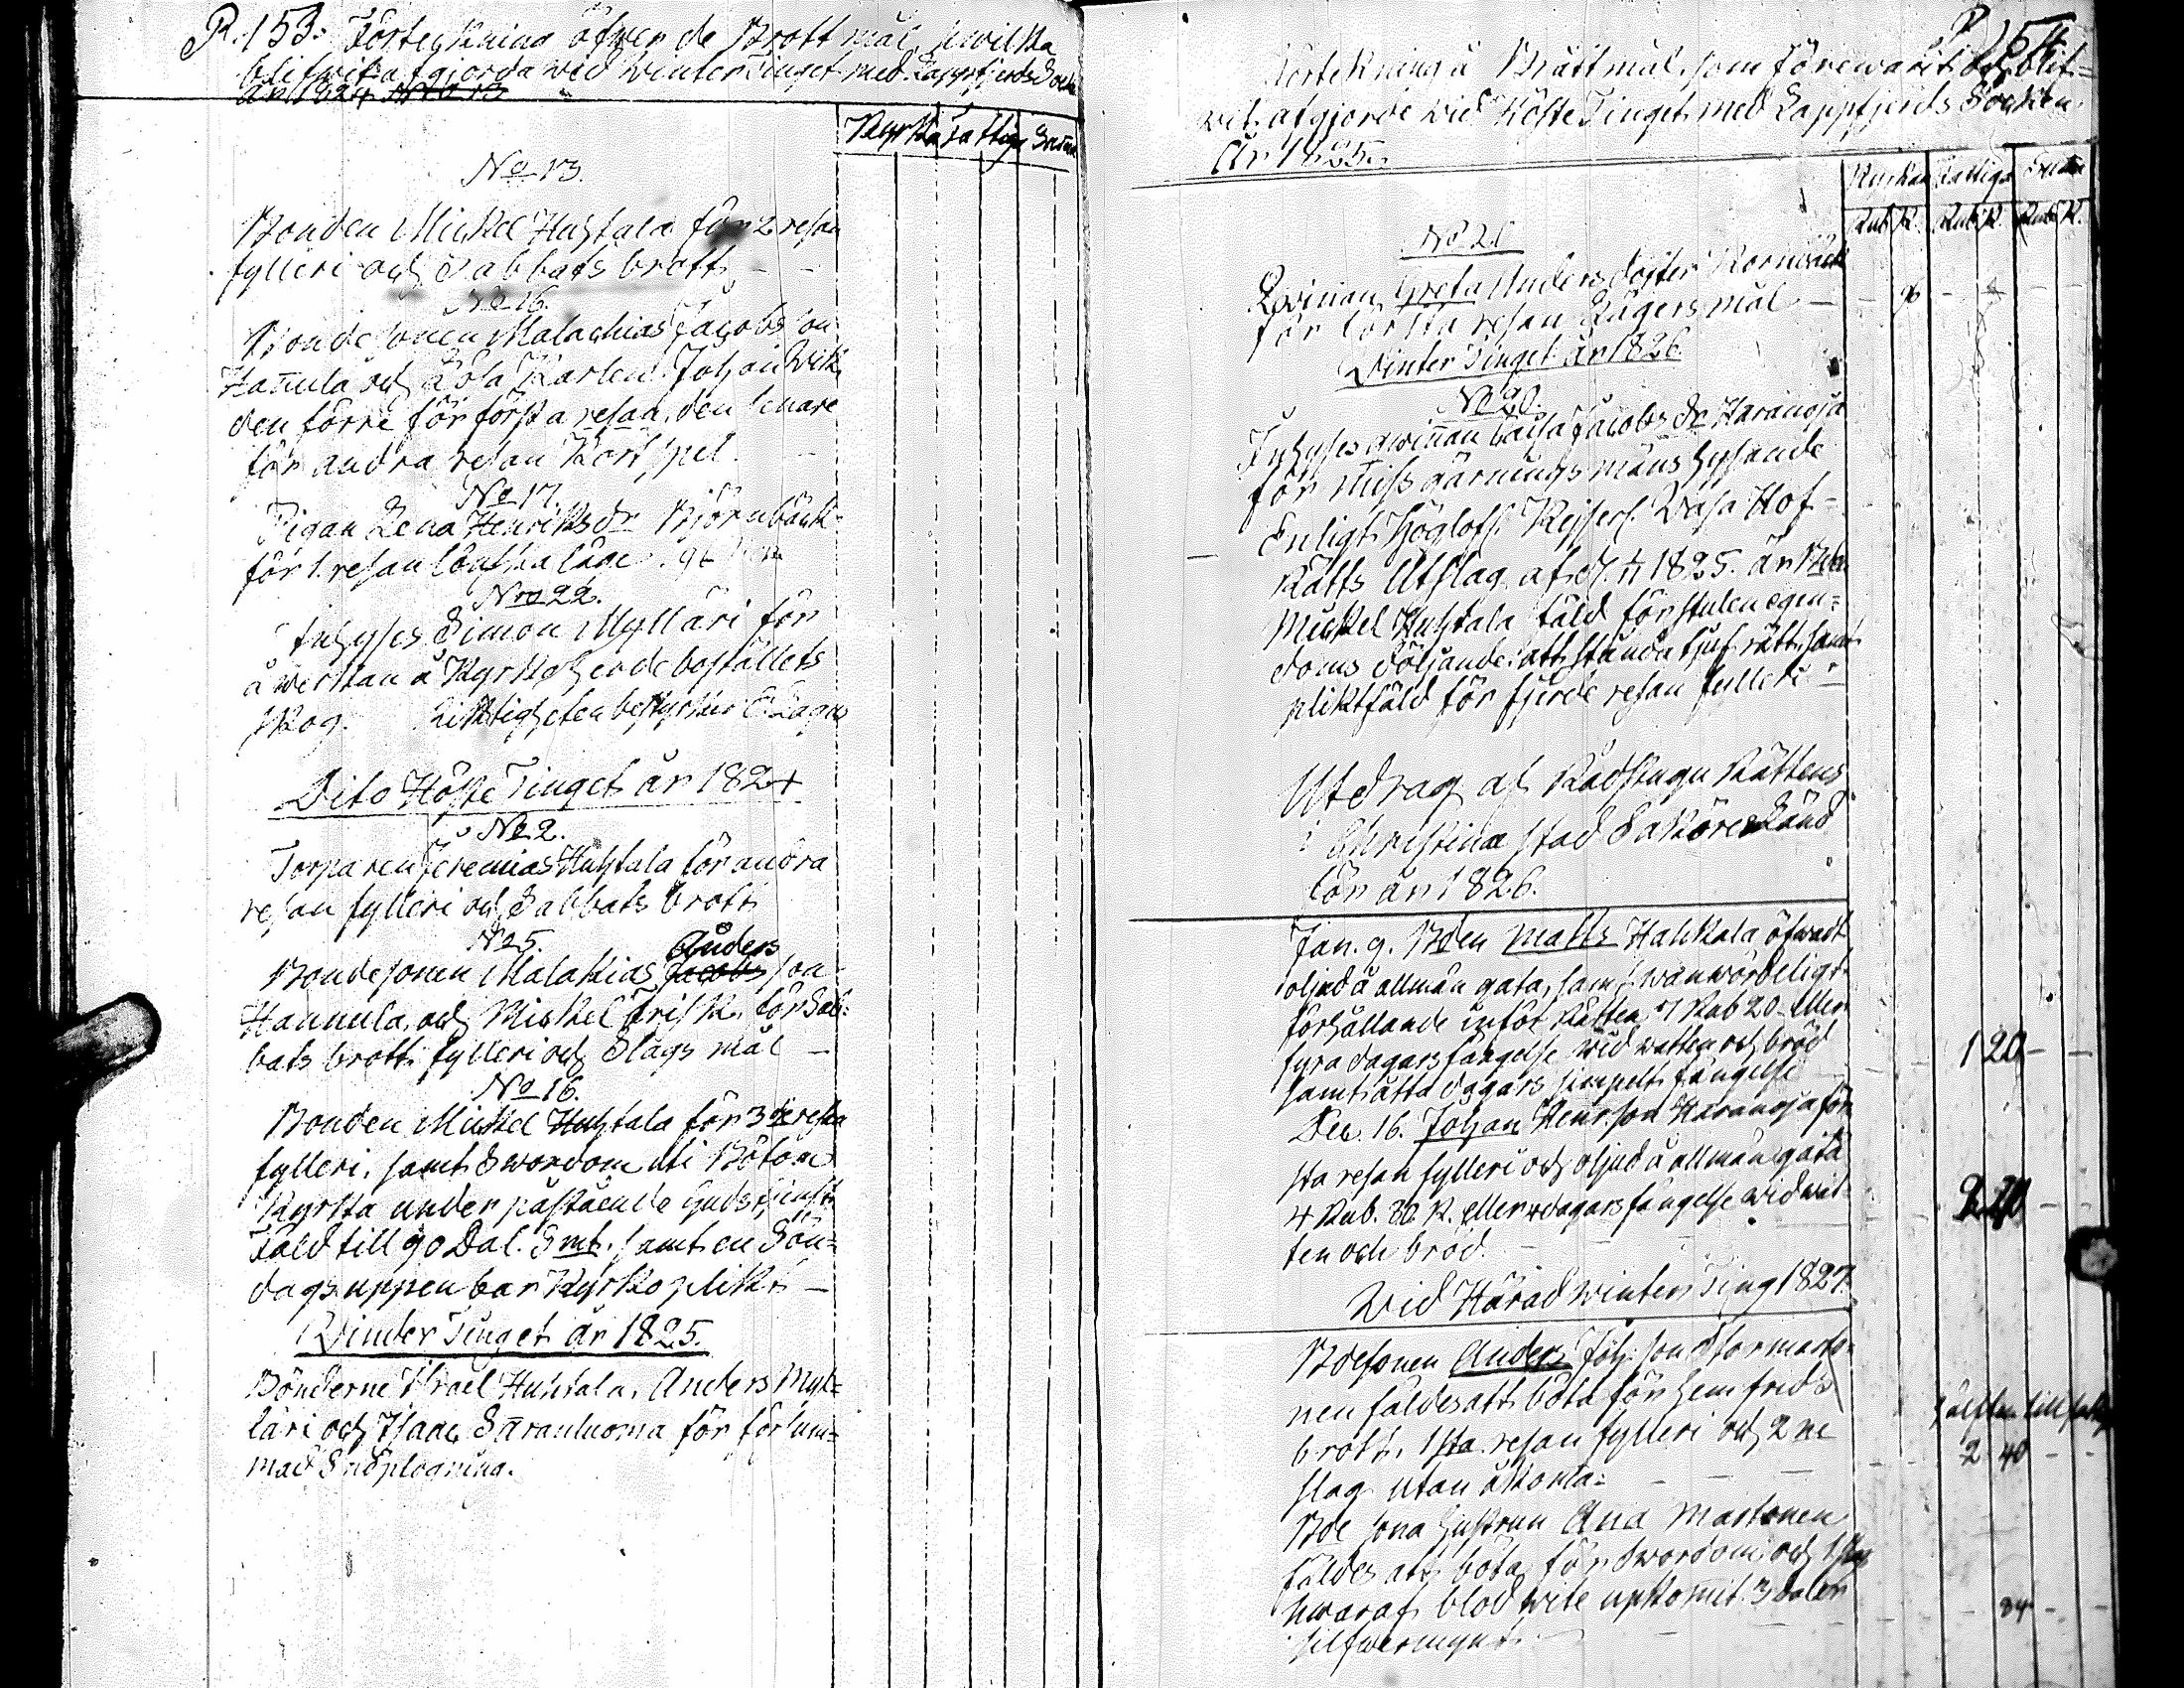 P. 153: Förtekning öfwer de Brottmål, hwilka
blifwit afgjorda wid Winter Tinget med Lappfjerds Sockn
år 1824 No 13
Kyrka fattige
No 13.
Bonden Mickel Huhtala för 2 resan
fylleri och Sabbats brott - -
No 16.
Bonde sonen Malachias Jacobsson
Hañula och Johan Wik
den förre för första resan, den senare
för andra resan Kortspel. -
No 17.
Pigan Lena Henriksdr Björnbäck
för 1. resan lönskaläge.
Nro 22.
Inhyses Simon Mylläri för
åwerkan å Kyrkoherde boställets
skog. Riktigheten bestyrker
Dito Höste Tinget år 1824
No 2.
Torparen Jeremias Huhtala för andra
resan fylleri och Sabbats brott
No 5. Anders
Bondesonen Malakias Jacobs son
Hannula, och Mickel Frisk, för Sab=
bats brott, fylleri och Slagsmål -
No 16.
Bonden Mickel Huhtala för 3dje resan
fylleri, samt Swordom uti Bötom
Kyrka under påstående Gudstjenst
Fäld till 90 Dal. Smt. samt en Sön=
dags uppenbar Kyrkoplikt -
Winder Tinget år 1825.
Bönderne Israel Huhtala, Anders Myl=
läri och Isaac Säranluoma för försum=
mad Snöplogning.
P. 154
Förtekning å Bråttmål, som förewarit och blif=
wit afgjorde wid Höste Tinget med Lappfjerds Socken
År 1825.
Kyrkan Fattiga
Rub K. Rub K. Rub K.
No 21
Qwinnan Greta Andersdotter Kornbäck
för första resan Lägersmål - - 96 -
Winter Tinget år 1826.
No 20.
Inhyses qwiñan Caisa Jacobsdr Haranoja
för missgärningsmäns hysande
Enligt Höglofl. Kejserl. Wasa Hof=
Rätts Utslag af d. 1825. är Bden
Mickel Huhtala fäld för stulen egen=
doms döljande att stånda tjufrätt, samt
pliktfäld för fjerde resan fylleri -
Utdrag af Rådstugu Rättens
i Christinæ stad Saköreslängd
för år 1826.
Jan. 9. Bden Matts Hahkala öfwadt
oljud å allmän gata, samt wanwördeligt
förhållande inför Rätten, 7 Rub 20 eller
fyra dagars fängelse wid watten och bröd 1 20 - -
samt åtta dagars simpelt fängelse
Dec. 16. Johan Henr.son Haranoja för
sta resan fylleri och oljud å allmän gata
4 Rub. 80 K. eller 4 dagars fängelse wid wat-
ten och bröd.
Wid Härad winter Ting 1827.
Bdesonen Anders
nen fäldes att böta för hemfrids
brott, 1sta resan fylleri och 2ne hälften till
slag utan åkoma= 2 40 - -
Bde sona hustrun Ana Martonen
fäldes att böta för swordom och
hwaraf blodwite upkomit 3 daler 84 -
silfwermynt.